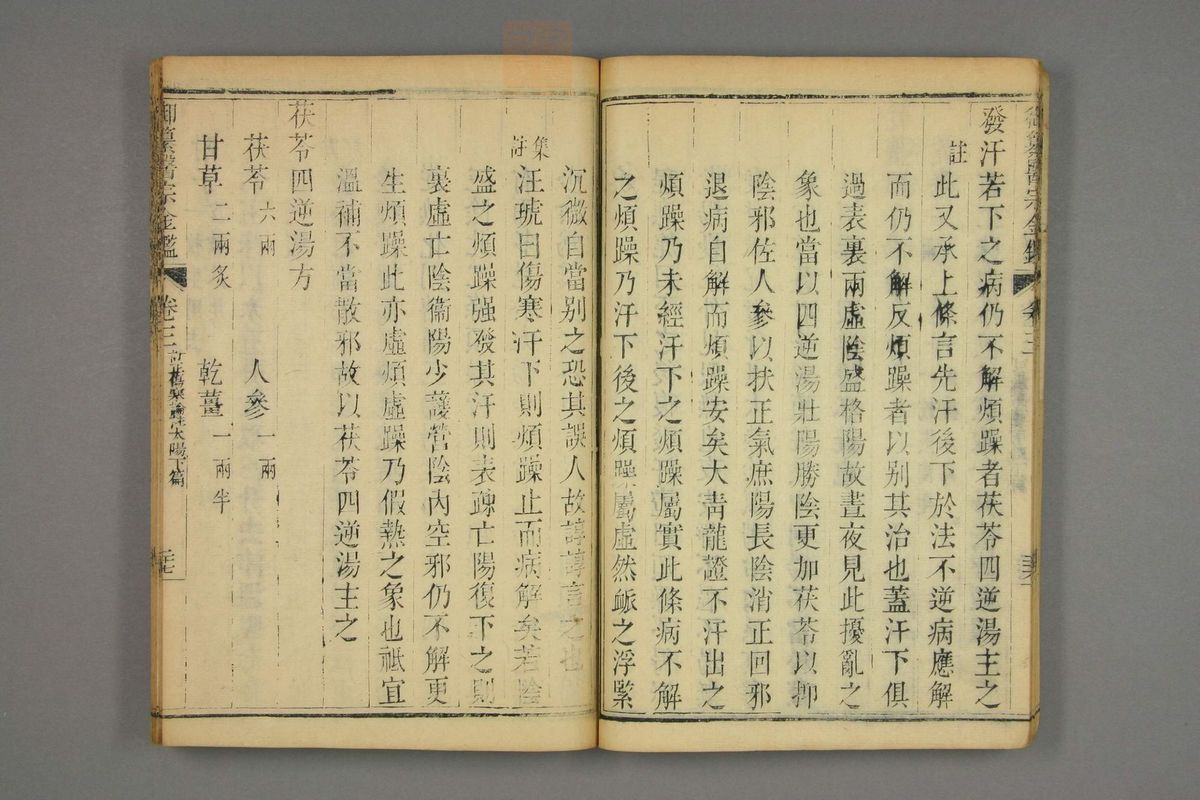 御纂醫宗金鑑 卷三
發汗若下之病仍不解煩躁者茯苓四逆湯主之
註
此又承上條言先汗後下於法不逆病應解
而仍不解反煩躁者以别其治也蓋汗下俱
過表裏兩虛陰盛格陽故晝夜見此擾亂之
象也當以四逆湯壯陽勝陰更加茯苓以抑
陰邪佐人參以扶正氣庶陽長陰消正回邪
退病自解而煩躁安矣大青龍證不汗出之
煩躁乃未經汗下之煩躁屬實此條病不解
之煩躁乃汗下後之煩躁屬虛然䘑之浮緊
沉微自當别之恐其誤人故諄諄言之也
集註
汪琥曰傷寒汗下則煩躁止而病解矣若陰
盛之煩躁强發其汗則表疎亡陽復下之則
裏虛亡陰衞陽少護營陰內空邪仍不解更
生煩躁此亦虛煩虛躁乃假熱之象也祗宜
溫補不當散邪故以茯苓四逆湯主之
茯苓四逆湯方
茯苓六兩 人參一兩
甘草二兩炙 乾薑一兩半
御纂醫宗金鑑 卷三 訂正傷寒論註太陽下篇